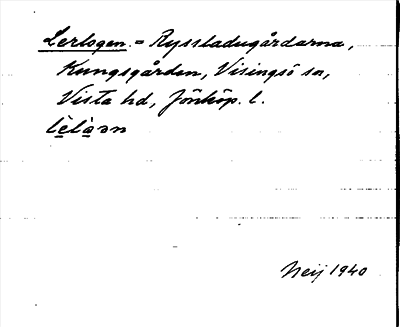 Lerlogen. = Ryssladugårdarna,
Kungsgården, Visingsö sn,
Vista hd, Jönköp. l.
lèlàən
Neij 1940